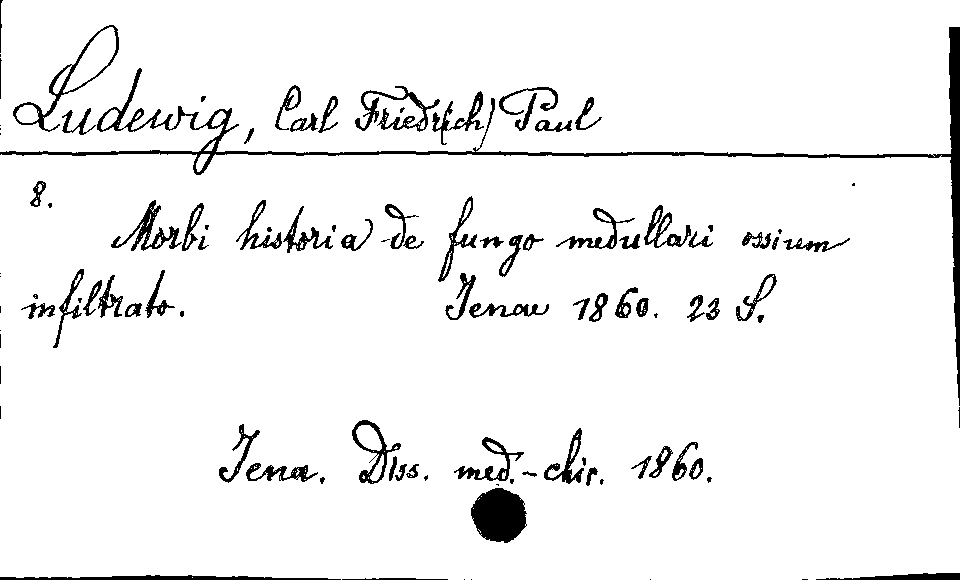 Ludewig, Carl Friedr(ich) Paul
8.
Morbi historia de fungo medullari ossium
infiltrato. Jenae 1860. 23 S.
Jena. Diss. med.-chir. 1860.